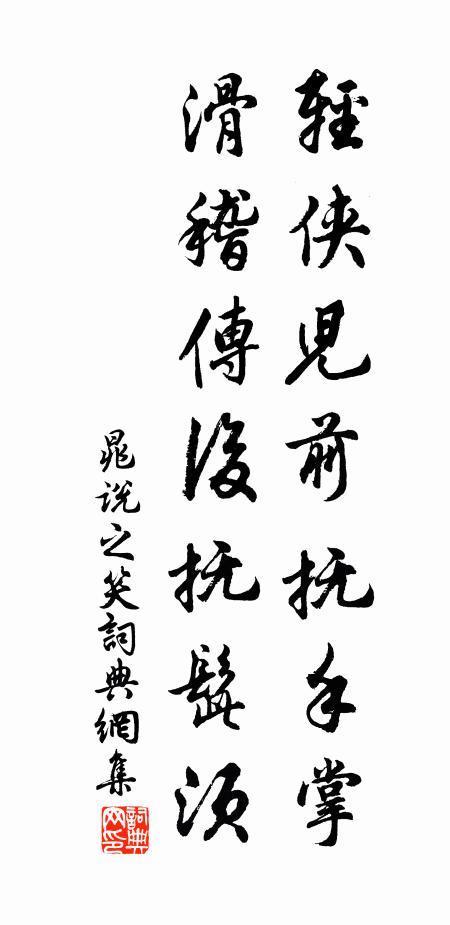 輕俠兒前抚手掌
滑稽傳後抚髭须
晁说之笑詞典網集
詞典
网印